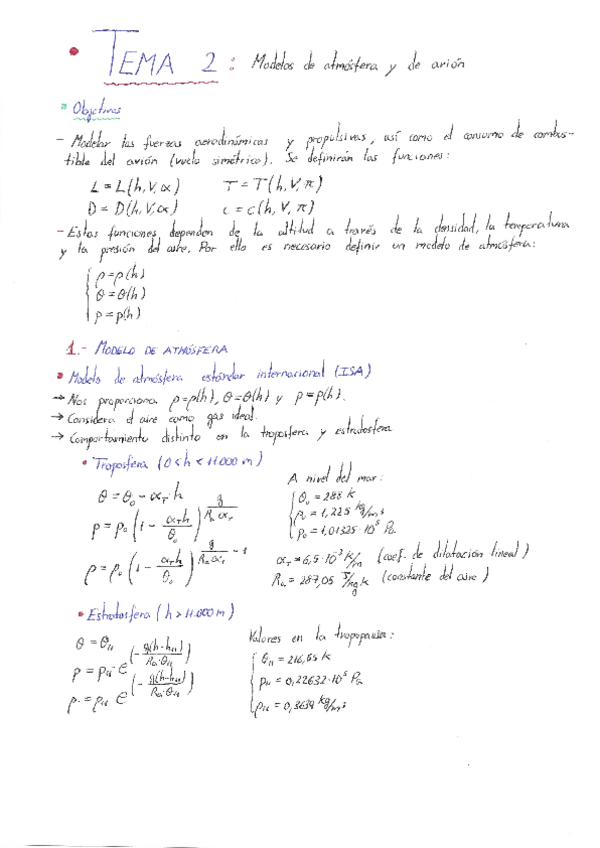 • TEMA 2: Modelos de atmósfera y de avión
▪ Objetivos
- Modelar las fuerzas aerodinámicas y propulsivas, así como el consumo de combus-
tible del avión (vuelo simétrico). Se definirán las funciones:
L = L(h,V,α)    T = T(h,V,π)
D = D(h,V,α)    c = c(h,V,π)
- Estas funciones dependen de la altitud a través de la densidad, la temperatura
y la presión del aire. Por ello es necesario definir un modelo de atmósfera:
ρ = ρ(h)
θ = θ(h)
p = p(h)
1.- MODELO DE ATMÓSFERA
• Modelo de atmósfera estándar internacional (ISA)
→ Nos proporciona ρ = ρ(h), θ = θ(h) y p = p(h).
→ Considera el aire como gas ideal.
→ Comportamiento distinto en la troposfera y estratosfera
• Troposfera (0 < h < 11.000 m)
A nivel del mar:
θ = θ₀ - α_T·h
θ₀ = 288 K
p = p₀ (1 - α_T h/θ₀)^(g/(R_a α_T))
ρ₀ = 1,225 kg/m³
p₀ = 1,01325·10⁵ Pa
ρ = ρ₀ (1 - α_T h/θ₀)^(g/(R_a α_T) - 1)
α_T = 6,5·10⁻³ K/m (coef. de dilatación lineal)
R_a = 287,05 J/kg K (constante del aire)
• Estratosfera (h > 11.000 m)
Valores en la tropopausa:
θ = θ₁₁
θ₁₁ = 216,65 K
p = p₁₁·e^(- g(h-h₁₁)/(R_a·θ₁₁))
p₁₁ = 0,22632·10⁵ Pa
ρ = ρ₁₁ e^(- g(h-h₁₁)/(R_a·θ₁₁))
ρ₁₁ = 0,3639 kg/m³